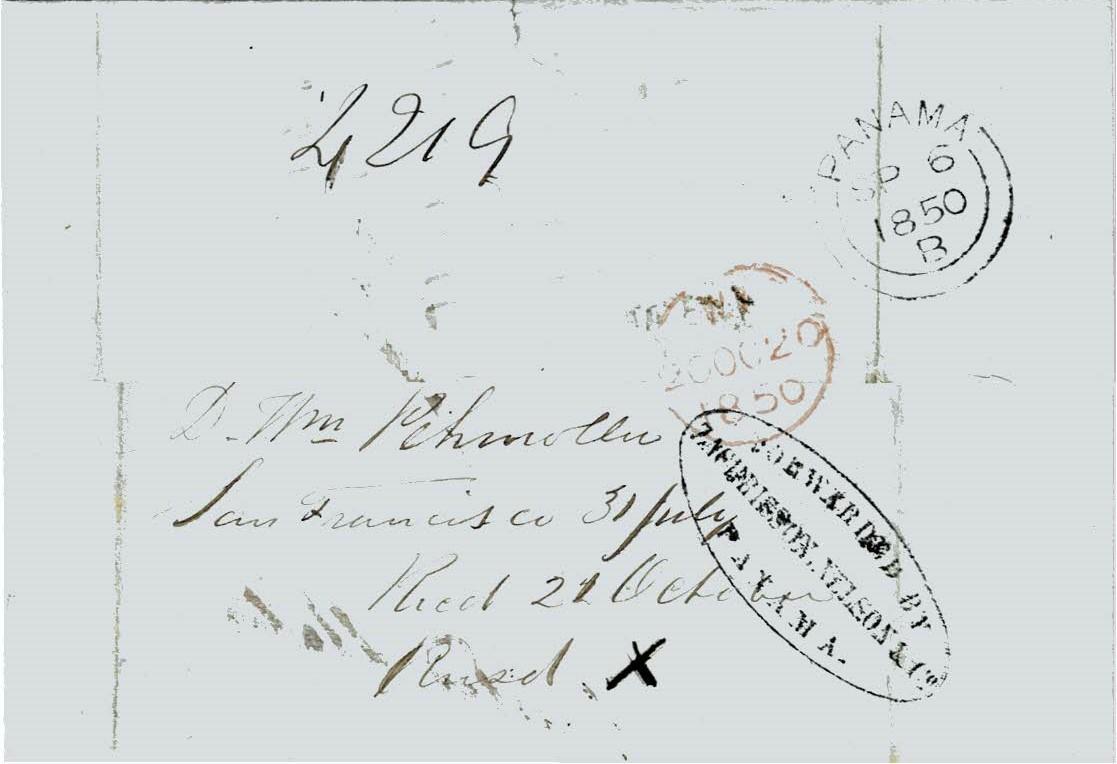 4219
PANAMA
SP 6
1850
B
20 OC 20
1850
D. Wm
San Francisco 31 July
Recd 21 October
FORWARDED BY
WILSON & Co
PANAMA.
X